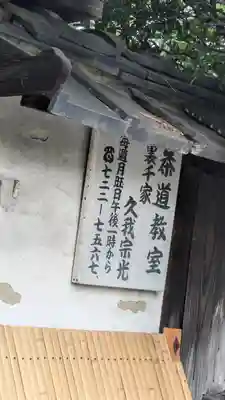 茶道教室
裏千家
久我宗光
毎週月曜日午後一時から
☎七二二―七五六七